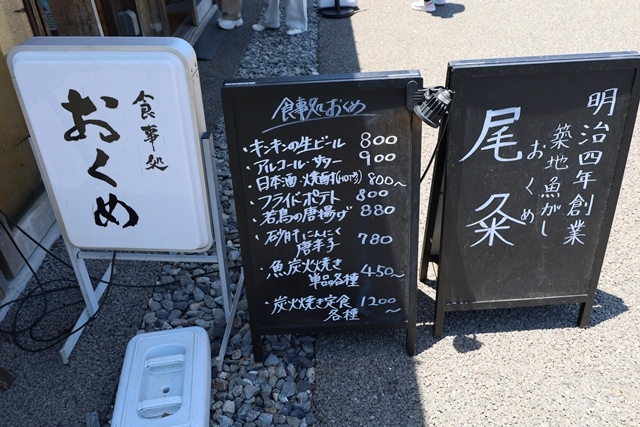 食事処
おくめ
食事処おくめ
・キンキンの生ビール 800
・アルコール・サワー 900
・日本酒・焼酎(HOT可) 800〜
・フライドポテト 800
・若鳥の唐揚げ 880
・砂肝にんにく
唐辛子 780
・魚炭火焼き
単品各種 450〜
・炭火焼き定食 1200
各種 〜
明治四年創業
築地魚がし
おくめ
尾粂